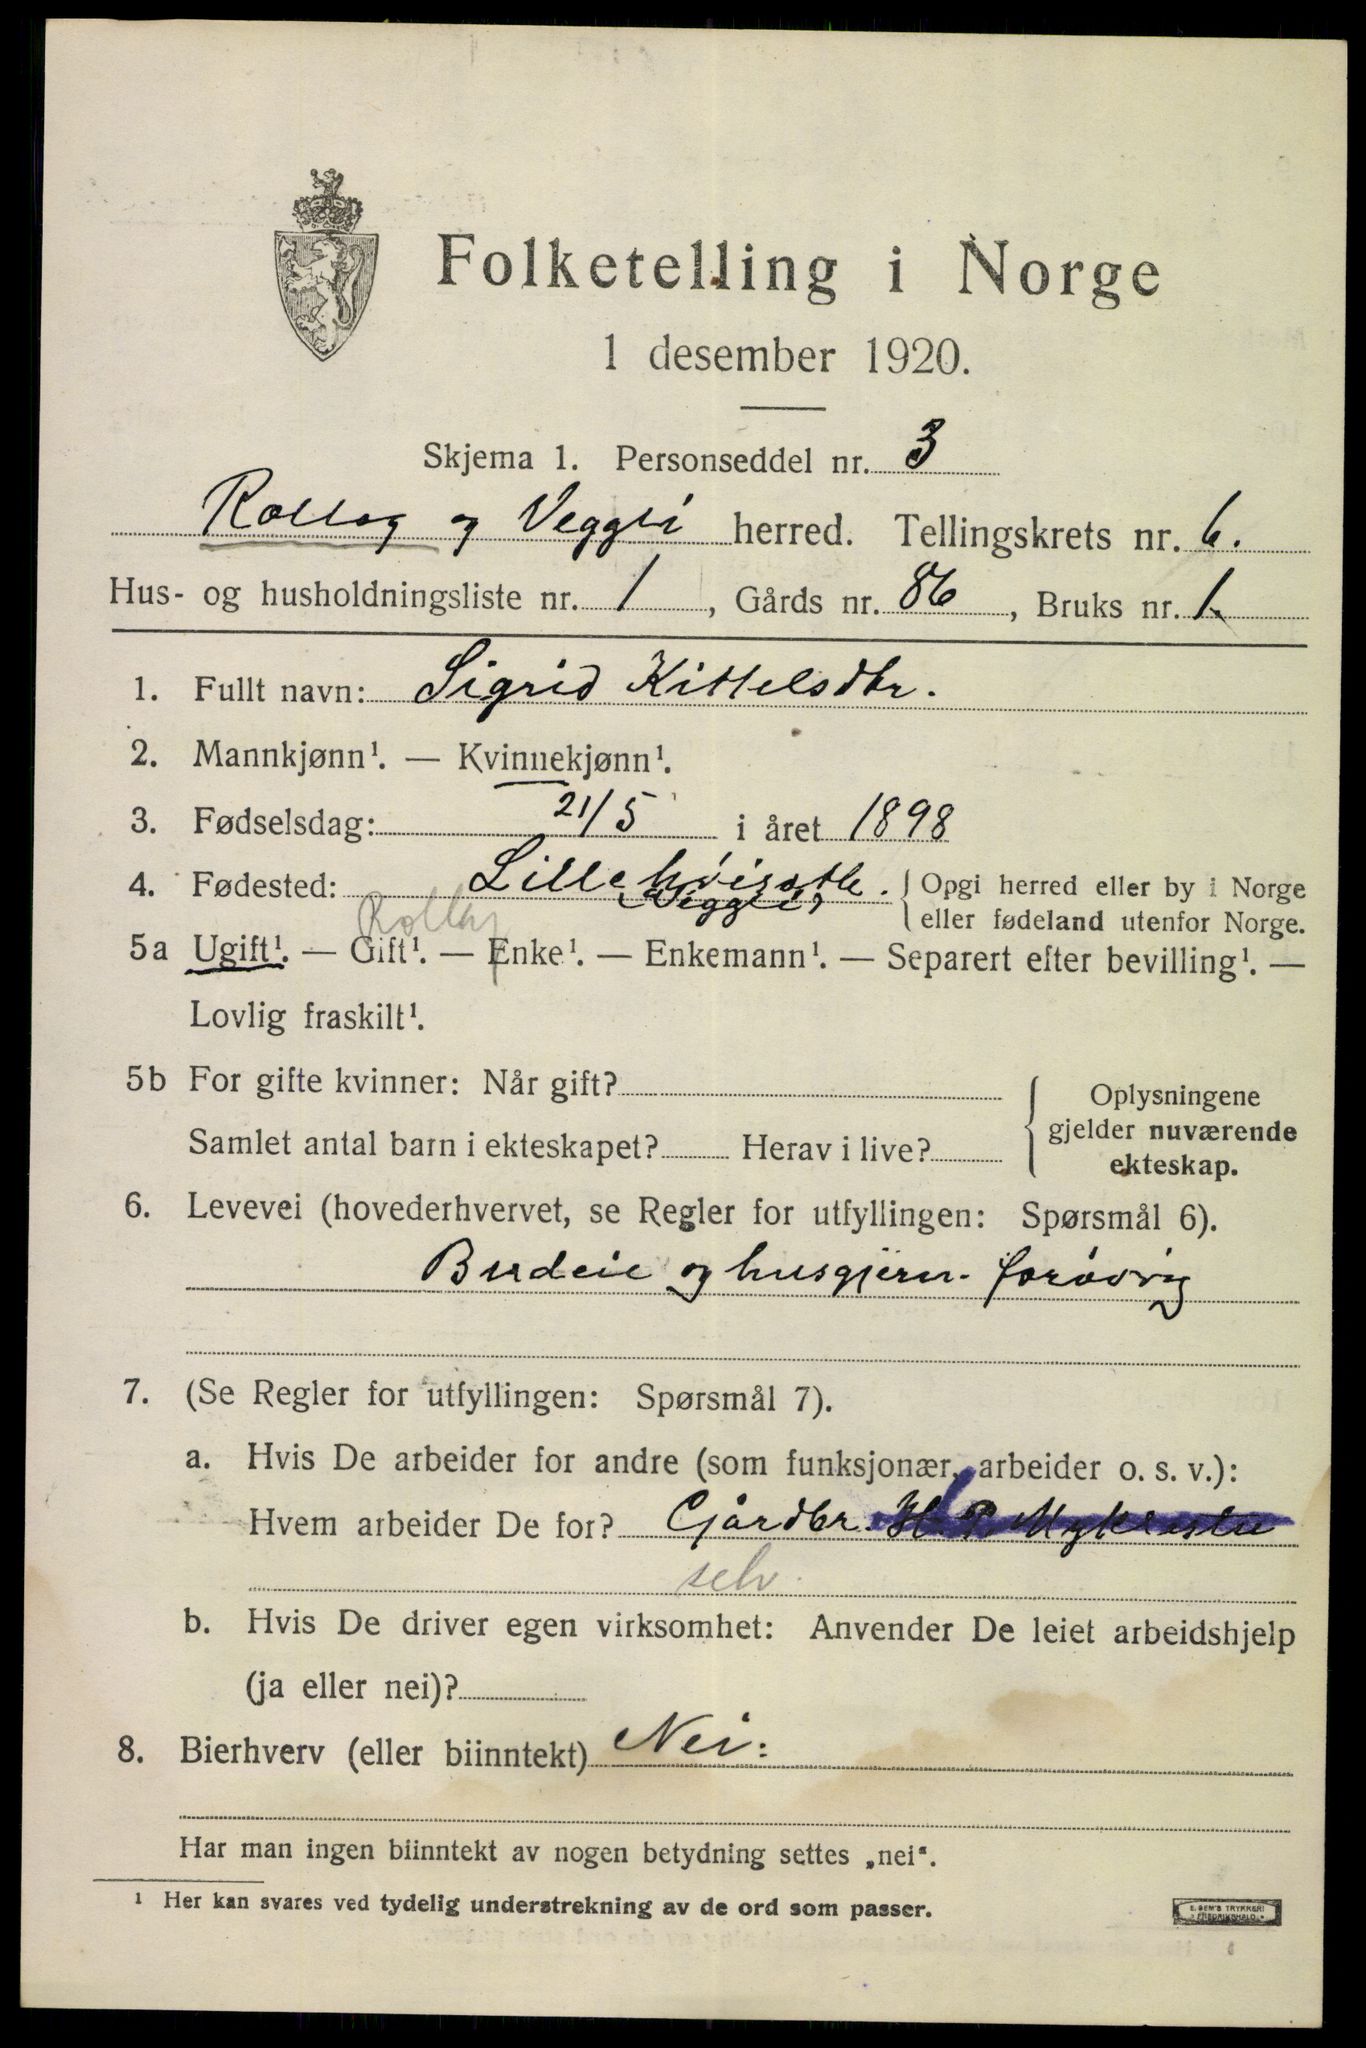 Folketelling i Norge
1 desember 1920.
Skjema 1. Personseddel nr. 3
Rollag og Veggli herred. Tellingskrets nr. 6.
Hus- og husholdningsliste nr. 1, Gårds nr. 86, Bruks nr. 1.
1. Fullt navn: Sigrid Kittelsdtr.
2. Mannkjønn¹. — Kvinnekjønn¹.
3. Fødselsdag: 21/5 i året 1898
4. Fødested: { Opgi herred eller by i Norge
Veggli
eller fødeland utenfor Norge.
Rollag
5a Ugift¹. — Gift¹. — Enke¹. — Enkemann¹. — Separert efter bevilling¹. —
Lovlig fraskilt¹.
5b For gifte kvinner: Når gift?
Samlet antal barn i ekteskapet? Herav i live?
{ Oplysningene
gjelder nuværende
ekteskap.
6. Levevei (hovederhvervet, se Regler for utfyllingen: Spørsmål 6).
Budeie og husgjern. forøvrig
7. (Se Regler for utfyllingen: Spørsmål 7).
a. Hvis De arbeider for andre (som funksjonær, arbeider o. s. v.):
Hvem arbeider De for? Gårdbr. H. P.
selv.
b. Hvis De driver egen virksomhet: Anvender De leiet arbeidshjelp
(ja eller nei)?
8. Bierhverv (eller biinntekt) Nei:
Har man ingen biinntekt av nogen betydning settes „nei“.
¹ Her kan svares ved tydelig understrekning av de ord som passer.
E. SEM'S TRYKKERI
FREDRIKSHALD